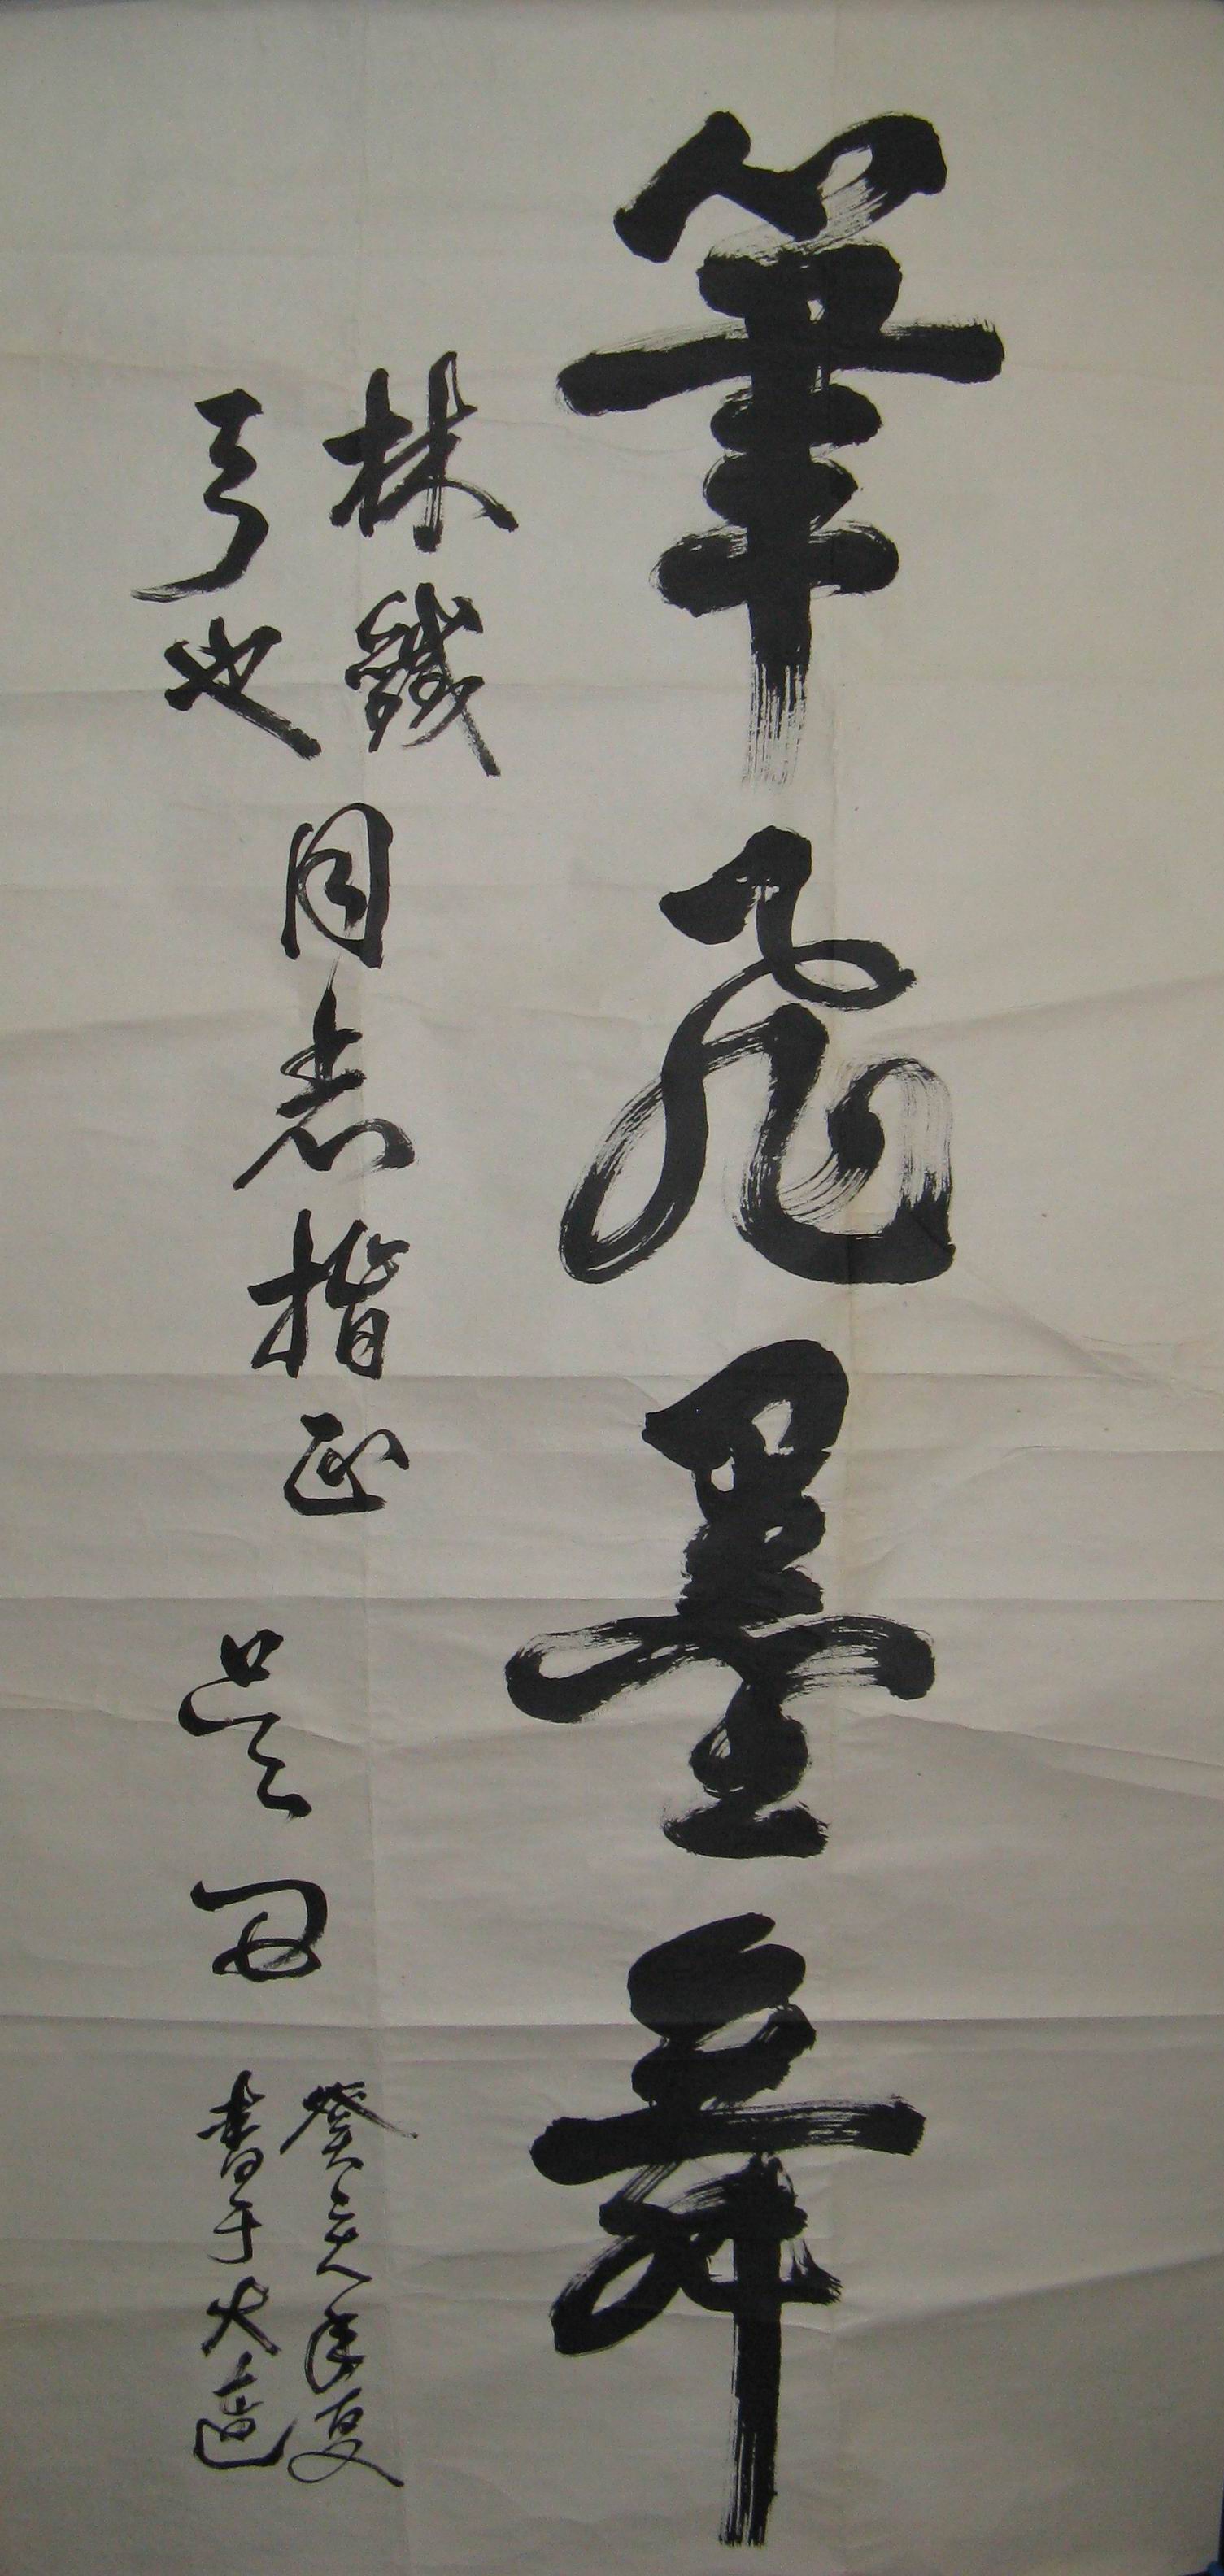 筆飛墨舞
林鐵
弓也
同志指正
癸亥年夏
書于大連